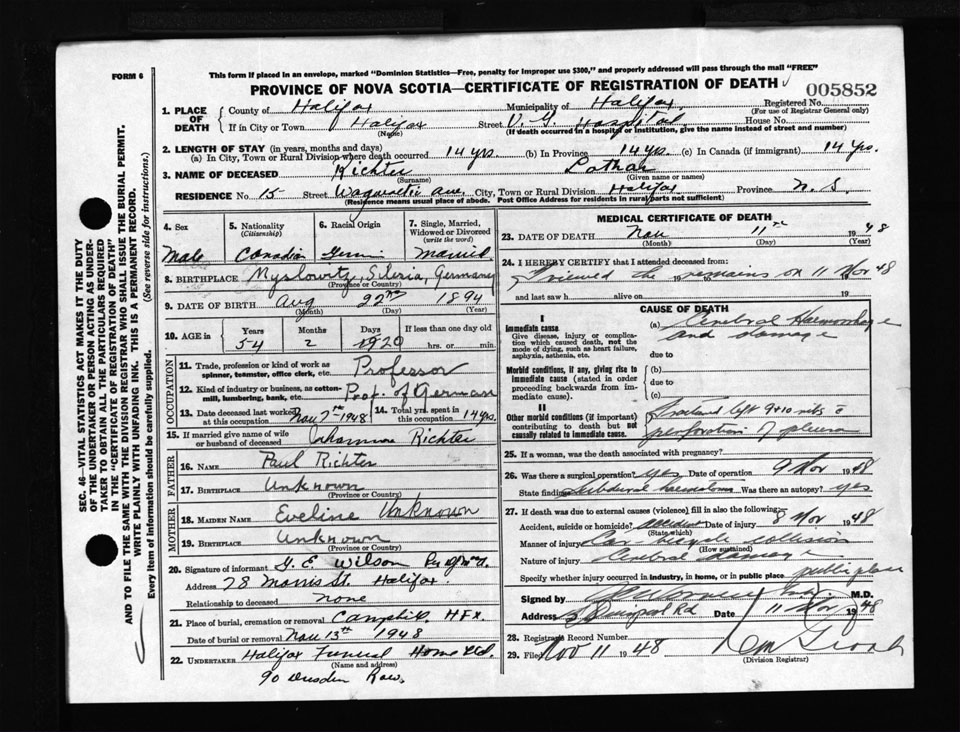 FORM 6
This form if placed in an envelope, marked "Dominion Statistics—Free, penalty for improper use $300," and properly addressed will pass through the mail "FREE"
PROVINCE OF NOVA SCOTIA—CERTIFICATE OF REGISTRATION OF DEATH
005852
1. PLACE OF DEATH
County of Halifax Municipality of Halifax Registered No.
(For use of Registrar General only)
If in City or Town Halifax Street V. G. Hospital House No.
(Name) (If death occurred in a hospital or institution, give the name instead of street and number)
2. LENGTH OF STAY (in years, months and days)
(a) In City, Town or Rural Division where death occurred 14 yrs. (b) In Province 14 yrs. (c) In Canada (if immigrant) 14 yrs.
3. NAME OF DECEASED Richter Lothar
(Surname) (Given name or names)
RESIDENCE No 15 Street Ave. City, Town or Rural Division Halifax Province N. S.
(Residence means usual place of abode. Post Office Address for residents in rural parts not sufficient)
4. Sex
Male
5. Nationality
(Citizenship)
Canadian
6. Racial Origin
7. Single, Married, Widowed or Divorced
(write the word)
Married
8. BIRTHPLACE Silesia, Germany
(Province or Country)
9. DATE OF BIRTH Aug 22nd 1894
(Month) (Day) (Year)
10. AGE in Years Months Days If less than one day old
54 2 20 hrs. or min.
OCCUPATION
11. Trade, profession or kind of work as spinner, teamster, office clerk, etc. Professor
12. Kind of industry or business, as cotton-mill, lumbering, bank, etc. Prof. of German
13. Date deceased last worked at this occupation Nov 7th 1948
14. Total yrs. spent in this occupation 14 yrs.
15. If married give name of wife or husband of deceased Richter
FATHER
16. NAME Paul Richter
17. BIRTHPLACE Unknown
(Province or Country)
MOTHER
18. MAIDEN NAME Eveline Unknown
19. BIRTHPLACE Unknown
(Province or Country)
20. Signature of informant G. E. Wilson
Address 78 Morris St. Halifax.
Relationship to deceased none
21. Place of burial, cremation or removal Camphill, HFX
Date of burial or removal Nov 13th 1948
22. UNDERTAKER Halifax Funeral Home Ltd.
(Name and address)
90 Dresden Row.
MEDICAL CERTIFICATE OF DEATH
23. DATE OF DEATH Nov 11th 1948
(Month) (Day) (Year)
24. I HEREBY CERTIFY that I attended deceased from:
I viewed the remains on 11 Nov 48
and last saw h alive on 19
CAUSE OF DEATH
I
Immediate cause
Give disease, injury or complication which caused death, not the mode of dying, such as heart failure, asphyxia, asthenia, etc.
(a) Cerebral Haemorrhage and damage
due to
Morbid conditions, if any, giving rise to immediate cause (stated in order proceeding backwards from immediate cause).
(b)
due to
(c)
II
Other morbid conditions (if important) contributing to death but not causally related to immediate cause.
left 9 & 10 ribs c perforation of pleura
25. If a woman, was the death associated with pregnancy?
26. Was there a surgical operation? yes Date of operation 9 Nov 1948
State findings Subdural haematoma Was there an autopsy? yes
27. If death was due to external causes (violence) fill in also the following:
Accident, suicide or homicide? accident Date of injury 8 Nov 1948
(State which)
Manner of injury Car-bicycle collision
(How sustained)
Nature of injury Cerebral damage
Specify whether injury occurred in industry, in home, or in public place public place
Signed by M.D.
Address Rd Date 11 Nov 1948
28. Registrar's Record Number
29. Filed Nov 11 1948
(Division Registrar)
SEC. 46—VITAL STATISTICS ACT MAKES IT THE DUTY OF THE UNDERTAKER OR PERSON ACTING AS UNDERTAKER TO OBTAIN ALL THE PARTICULARS REQUIRED IN THE "CERTIFICATE OF REGISTRATION OF DEATH" AND TO FILE THE SAME WITH THE DIVISION REGISTRAR WHO SHALL ISSUE THE BURIAL PERMIT.
WRITE PLAINLY WITH UNFADING INK. THIS IS A PERMANENT RECORD.
Every item of information should be carefully supplied. (See reverse side for instructions.)